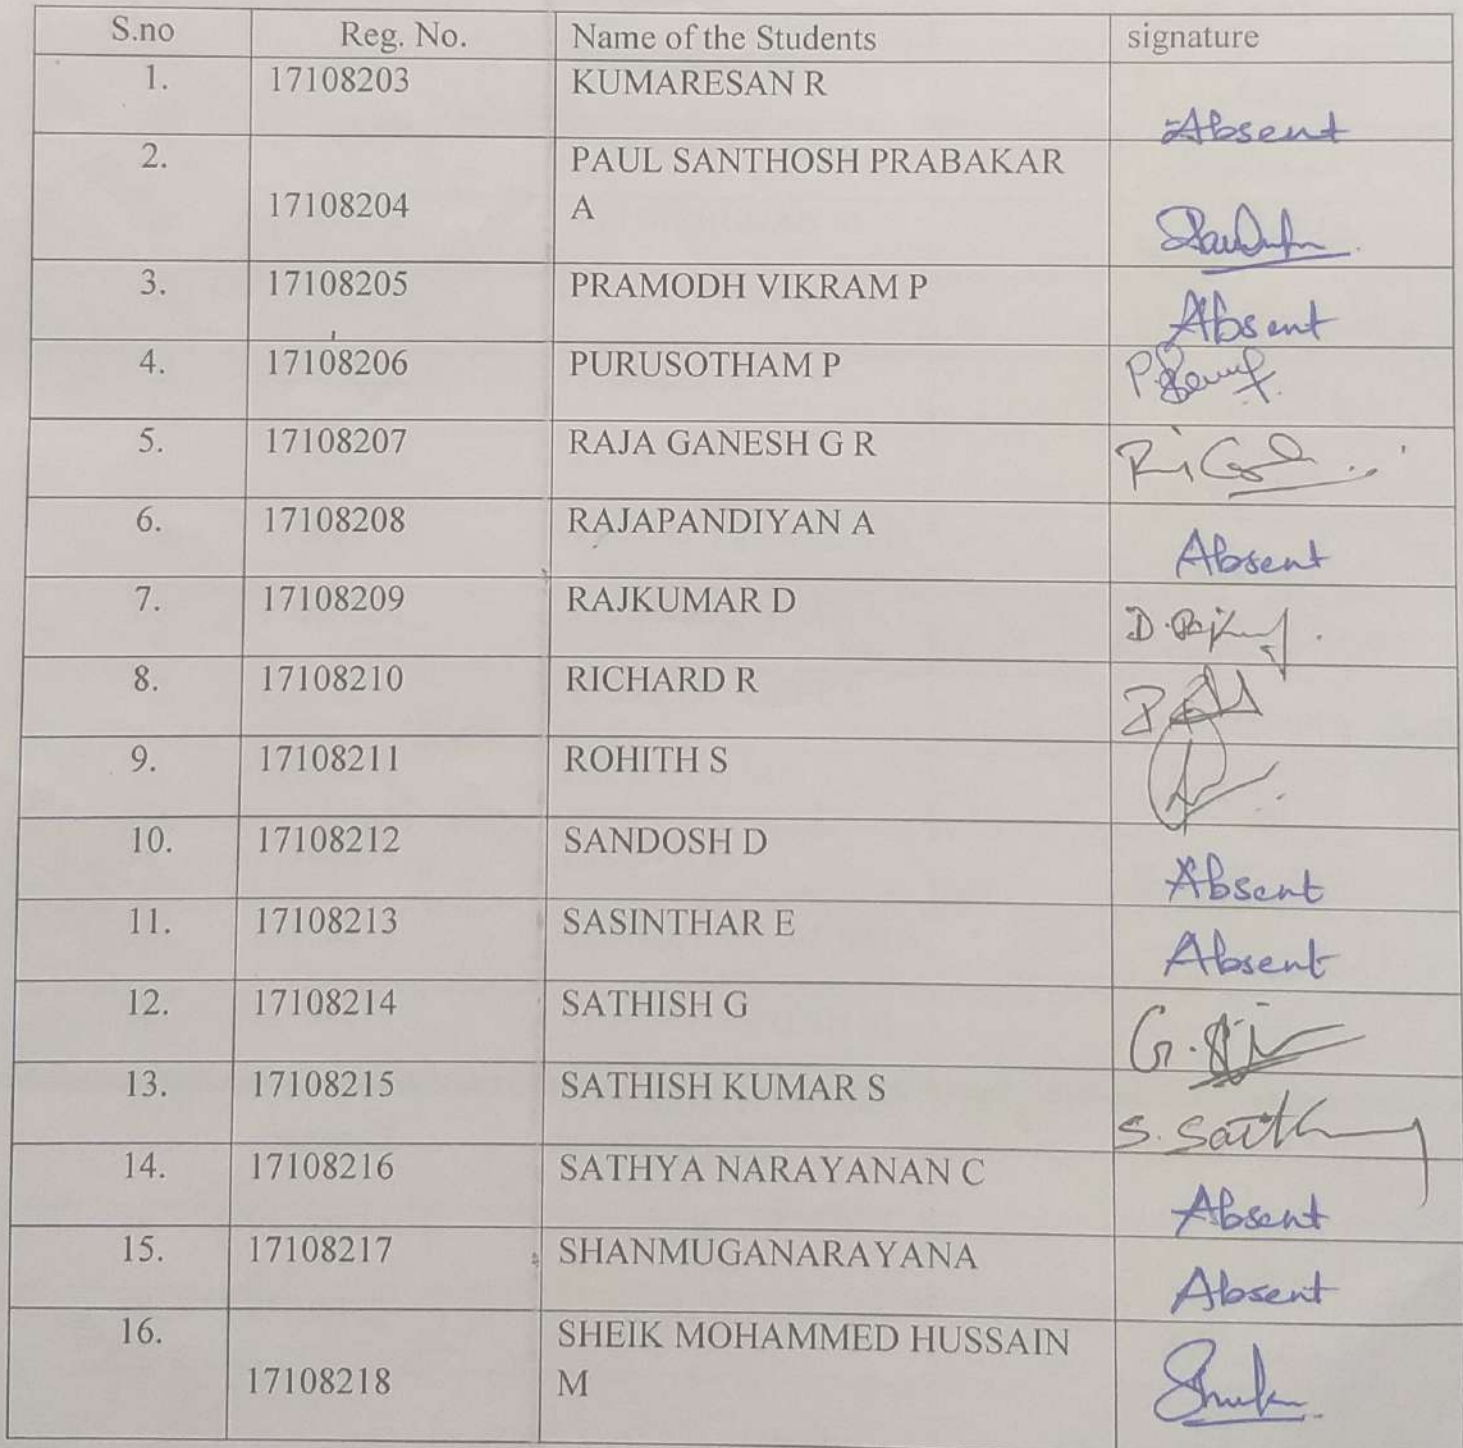 S.no Reg. No. Name of the Students signature
1. 17108203 KUMARESAN R Absent
2. 17108204 PAUL SANTHOSH PRABAKAR
A
3. 17108205 PRAMODH VIKRAM P Absent
4. 17108206 PURUSOTHAM P
5. 17108207 RAJA GANESH G R
6. 17108208 RAJAPANDIYAN A Absent
7. 17108209 RAJKUMAR D D.
8. 17108210 RICHARD R
9. 17108211 ROHITH S
10. 17108212 SANDOSH D Absent
11. 17108213 SASINTHAR E Absent
12. 17108214 SATHISH G G.
13. 17108215 SATHISH KUMAR S S.
14. 17108216 SATHYA NARAYANAN C Absent
15. 17108217 SHANMUGANARAYANA Absent
16. 17108218 SHEIK MOHAMMED HUSSAIN
M